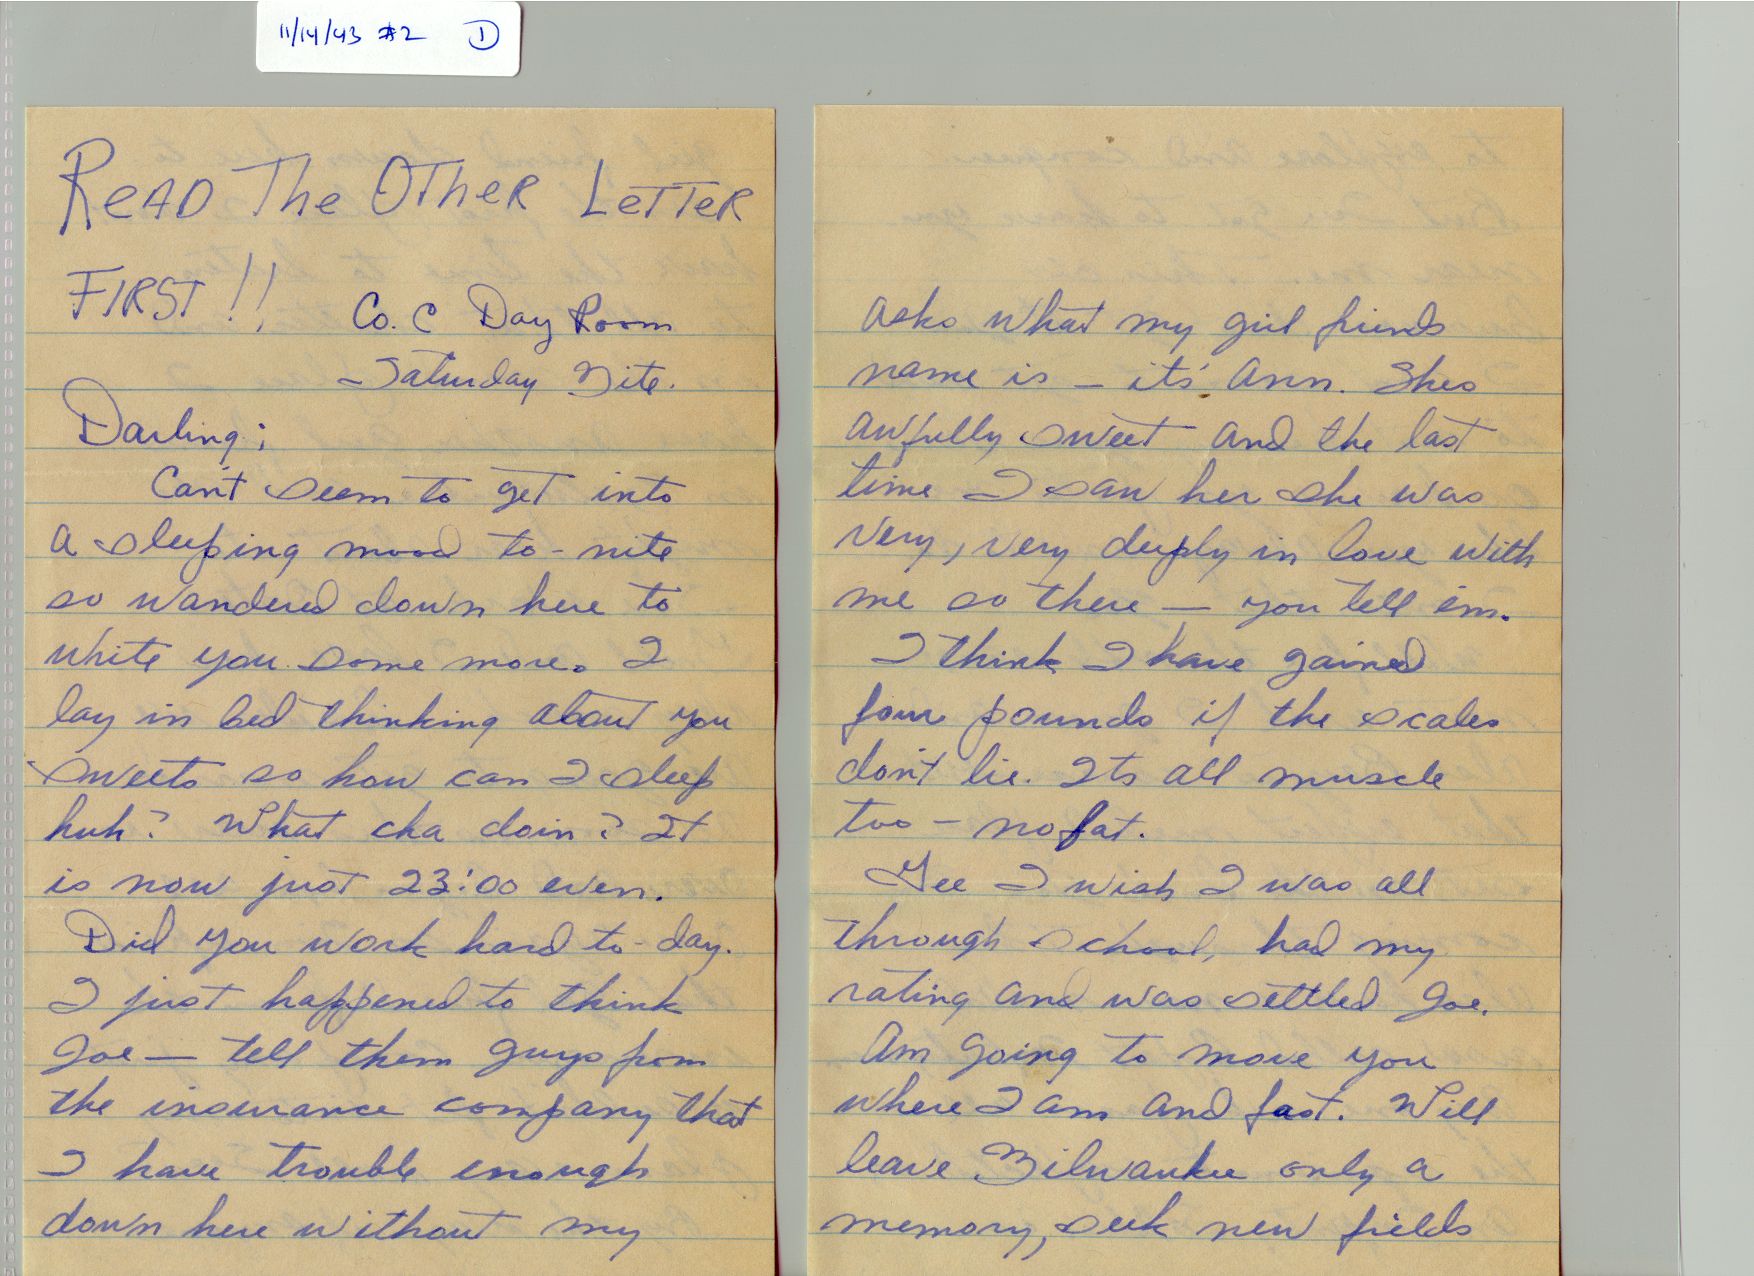 11/14/43 #2 1
READ THE OTHER LETTER
FIRST!!
Co. C Day Room
Saturday Nite.
Darling;
Can't seem to get into
a sleeping mood to-nite
so wandered down here to
write you some more. I
lay in bed thinking about you
sweets so how can I sleep
huh? What cha doin? It
is now just 23:00 even.
Did you work hard to-day.
I just happened to think
Joe — tell them guys from
the insurance company that
I have trouble enough
down here without my
asks what my girl friends
name is — its' Ann. Shes
awfully sweet and the last
time I saw her she was
very, very deeply in love with
me so there — you tell em.
I think I have gained
four pounds if the scales
don't lie. Its all muscle
too — no fat.
Gee I wish I was all
through school, had my
rating and was settled Joe.
Am going to move you
where I am and fast. Will
leave Milwaukee only a
memory, seek new fields